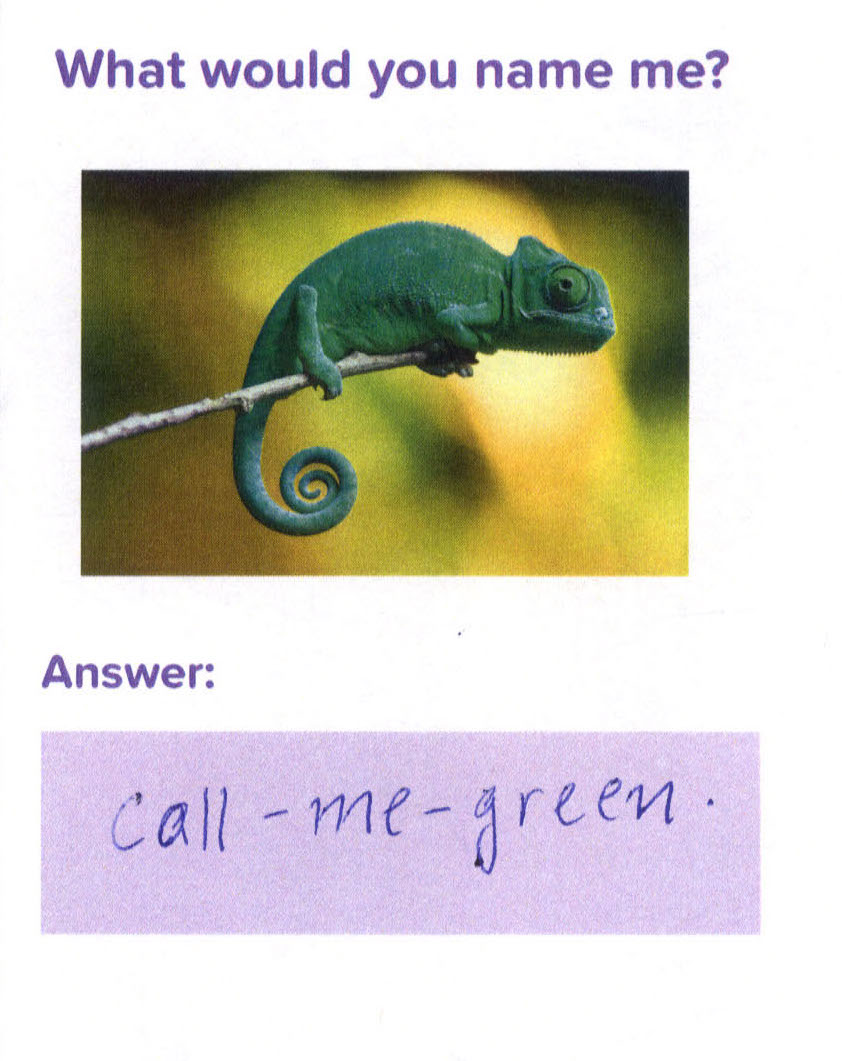 What would you name me?
Answer:
call-me-green.